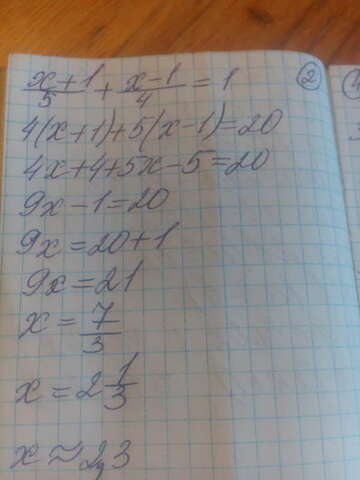 (x+1)/5 + (x-1)/4 = 1 ②
4(x+1)+5(x-1)=20
4x+4+5x-5=20
9x-1=20
9x=20+1
9x=21
x = 7/3
x = 2 1/3
x ≈ 2,3